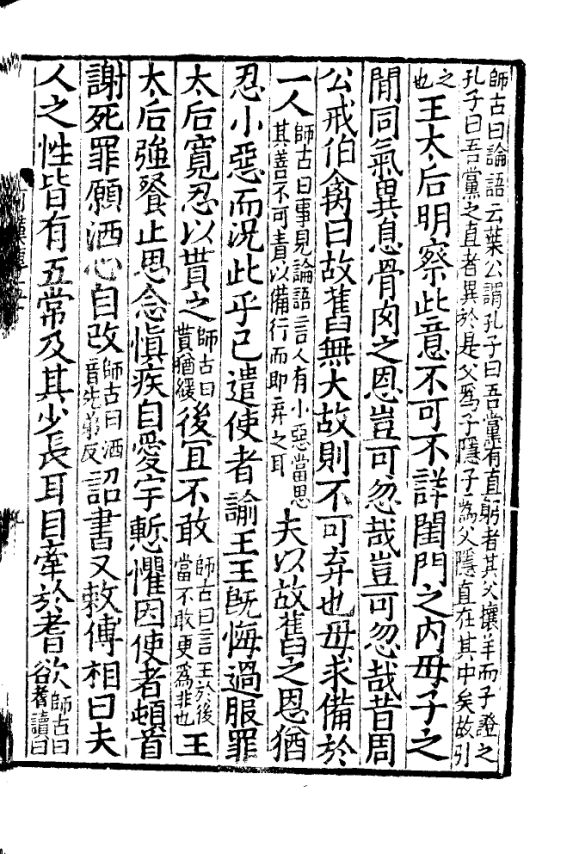 師古曰論語云葉公謂孔子曰吾黨有直躬者其父攘羊而子證之
孔子曰吾黨之直者異於是父爲子隱子爲父隱直在其中矣故引
之
也
王太后明察此意不可不詳閨門之内母子之
閒同氣異息骨肉之恩豈可忽哉豈可忽哉昔周
公戒伯禽曰故舊無大故則不可弃也毋求備於
一人
師古曰事見論語言人有小惡當思
其善不可責以備行而即弃之耳
夫以故舊之恩猶
忍小惡而況此乎已遣使者諭王王旣悔過服罪
太后寬忍以貰之
師古曰
貰猶緩
後宜不敢
師古曰言王於後
當不敢更爲非也
王
太后強飡止思念愼疾自愛宇慙懼因使者頓首
謝死罪願洒心自改
師古曰洒
音先弟反
詔書又敕傅相曰夫
人之性皆有五常及其少長耳目牽於耆欲
師古曰
耆讀曰